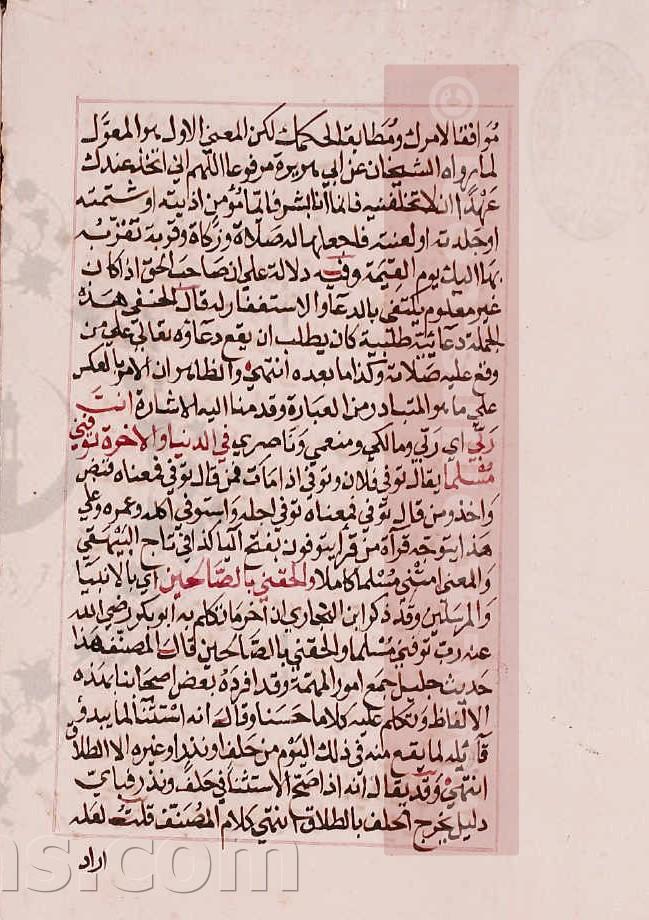 موافقا لامرك ومطابقا لحكمك لكن المعني الاول هو المعوّل
لما رواه الشيخان عن ابي هريرة مرفوعا اللهم اني اتخذ عندك
عهدا ان لا تخلفنيه فانما انا بشر فايما مؤمن اذيته او شتمته
او جلدته او لعنته فاجعلها له صلاة وزكاة وقربة تقربه
بها اليك يوم القيمة وفيه دلالة علي ان صاحب الحق اذا كان
غير معلوم يكتفي بالدعا والاستغفار له قال الحنفي هذه
الجملة دعائية طلبية كان يطلب ان يقع دعاؤه تعالي علي من
وقع عليه صلاته وكذا ما بعده انتهي والظاهر ان الامر بالعكس
علي ما هو المتبادر من العبارة وقدمنا اليه الاشارة انت
ربي اي ربي ومالكي ومنعمي وناصري في الدنيا والاخرة توفني
مسلما يقال توفي فلان وتوفي اذا مات فمن قال توفي فمعناه قبض
واخذ ومن قال توفي فمعناه توفي اجله واستوفي اكله وعمره وعلي
هذا يتوجه قرآة من قرا يتوفون بفتح اليا كذا في تاج البيهقي
والمعني امتني مسلما كاملا والحقني بالصالحين اي بالانبيا
والمرسلين وقد ذكر ابن النجاري ان اخر ما تكلم به ابو بكر رضي الله
عنه رب توفني مسلما والحقني بالصالحين قال المصنف هذا
حديث جليل جمع امور المهمة وقد افرده بعض اصحابنا بهذه
الالفاظ وتكلم عليه كلاما حسنا وقال انه استثنآ لما يبدو
قائله لما يقع منه في ذلك اليوم من حلف او نذر او غيره الا الطلاق
انتهي وقد يقال انه اذا صح الاستثنا في حلف ونذر فباي
دليل يخرج الحلف بالطلاق انتهي كلام المصنف قلت لعله
اراد
ns.com